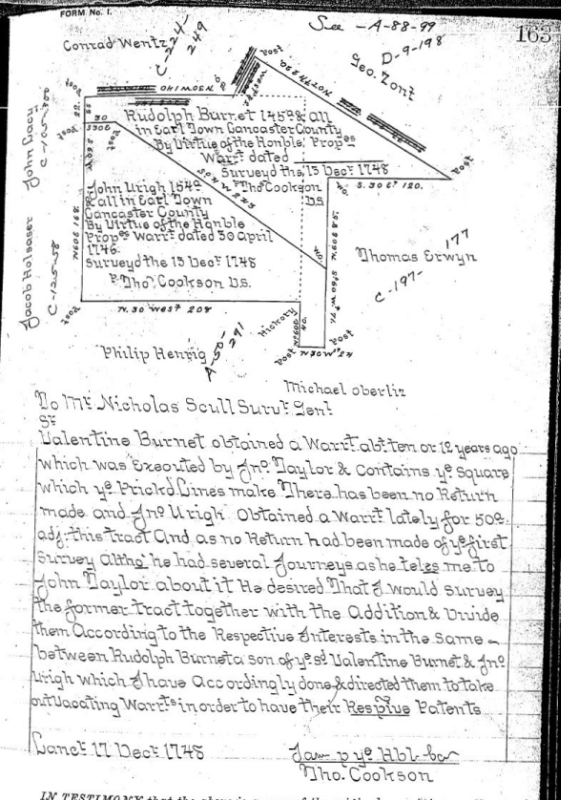 FORM No. 1.
See - A-88-99
163
Conrad Wentz
C-224-249
D-9-198
Geo. Zont
Post
Post
John Caru
Post
Post
Rudolph Burnet 145a & all
in Earl Town Lancaster County
By Virtue of the Honble Propes
Warrt dated
Surveyd the 13 Decr. 1748
Tho Cookson
D.S
S. 30 Et 120.
Post
John Urigh 154a
& all in Earl Town
Lancaster County
By Virtue of the Honble
Propes Warrt dated 30 April
1746
Surveyd the 13 Decr. 1748
P Tho. Cookson D.S.
Jacob Holsaser
C-125-58
N60E 168
Thomas Erwyn
C-197-177
Post
N. 30 West 208
Hickory
Post
Post
Philip Henrig
A-50-291
Michael Oberliz
To Mr. Nicholas Scull Survr. Genl.
Sr
Valentine Burnet obtained a Warrt. abt. ten or 12 years ago
which was Executed by Jno. Taylor & Contains ye Square
which ye Prickd Lines make There has been no Return
made and Jno Urigh Obtained a Warrt lately for 50a.
adj: this tract And as no Return had been made of ye first
Survey altho' he had several Journeys as he teles me to
John Taylor about it He desired That I would survey
the former tract together with the Addition & Divide
them According to the Respective Interests in the Same -
between Rudolph Burnet a son of ye sd Valentine Burnet & Jno
Urigh which I have Accordingly done & directed them to take
out Vacating Warrts in order to have their Respive Patents
Lancr. 17 Decr. 1748
Tho. Cookson